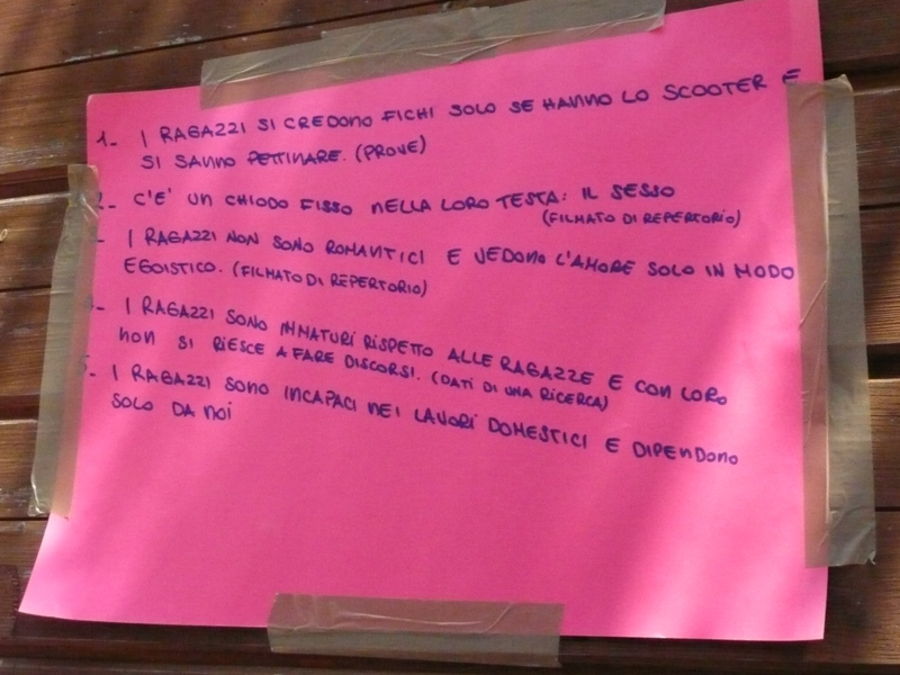 1- I RAGAZZI SI CREDONO FICHI SOLO SE HANNO LO SCOOTER E
SI SANNO PETTINARE. (PROVE)
2- C'E' UN CHIODO FISSO NELLA LORO TESTA: IL SESSO
(FILMATO DI REPERTORIO)
- I RAGAZZI NON SONO ROMANTICI E VEDONO L'AMORE SOLO IN MODO
EGOISTICO. (FILMATO DI REPERTORIO)
4- I RAGAZZI SONO IMMATURI RISPETTO ALLE RAGAZZE E CON LORO
NON SI RIESCE A FARE DISCORSI. (DATI DI UNA RICERCA)
5- I RAGAZZI SONO INCAPACI NEI LAVORI DOMESTICI E DIPENDONO
SOLO DA NOI